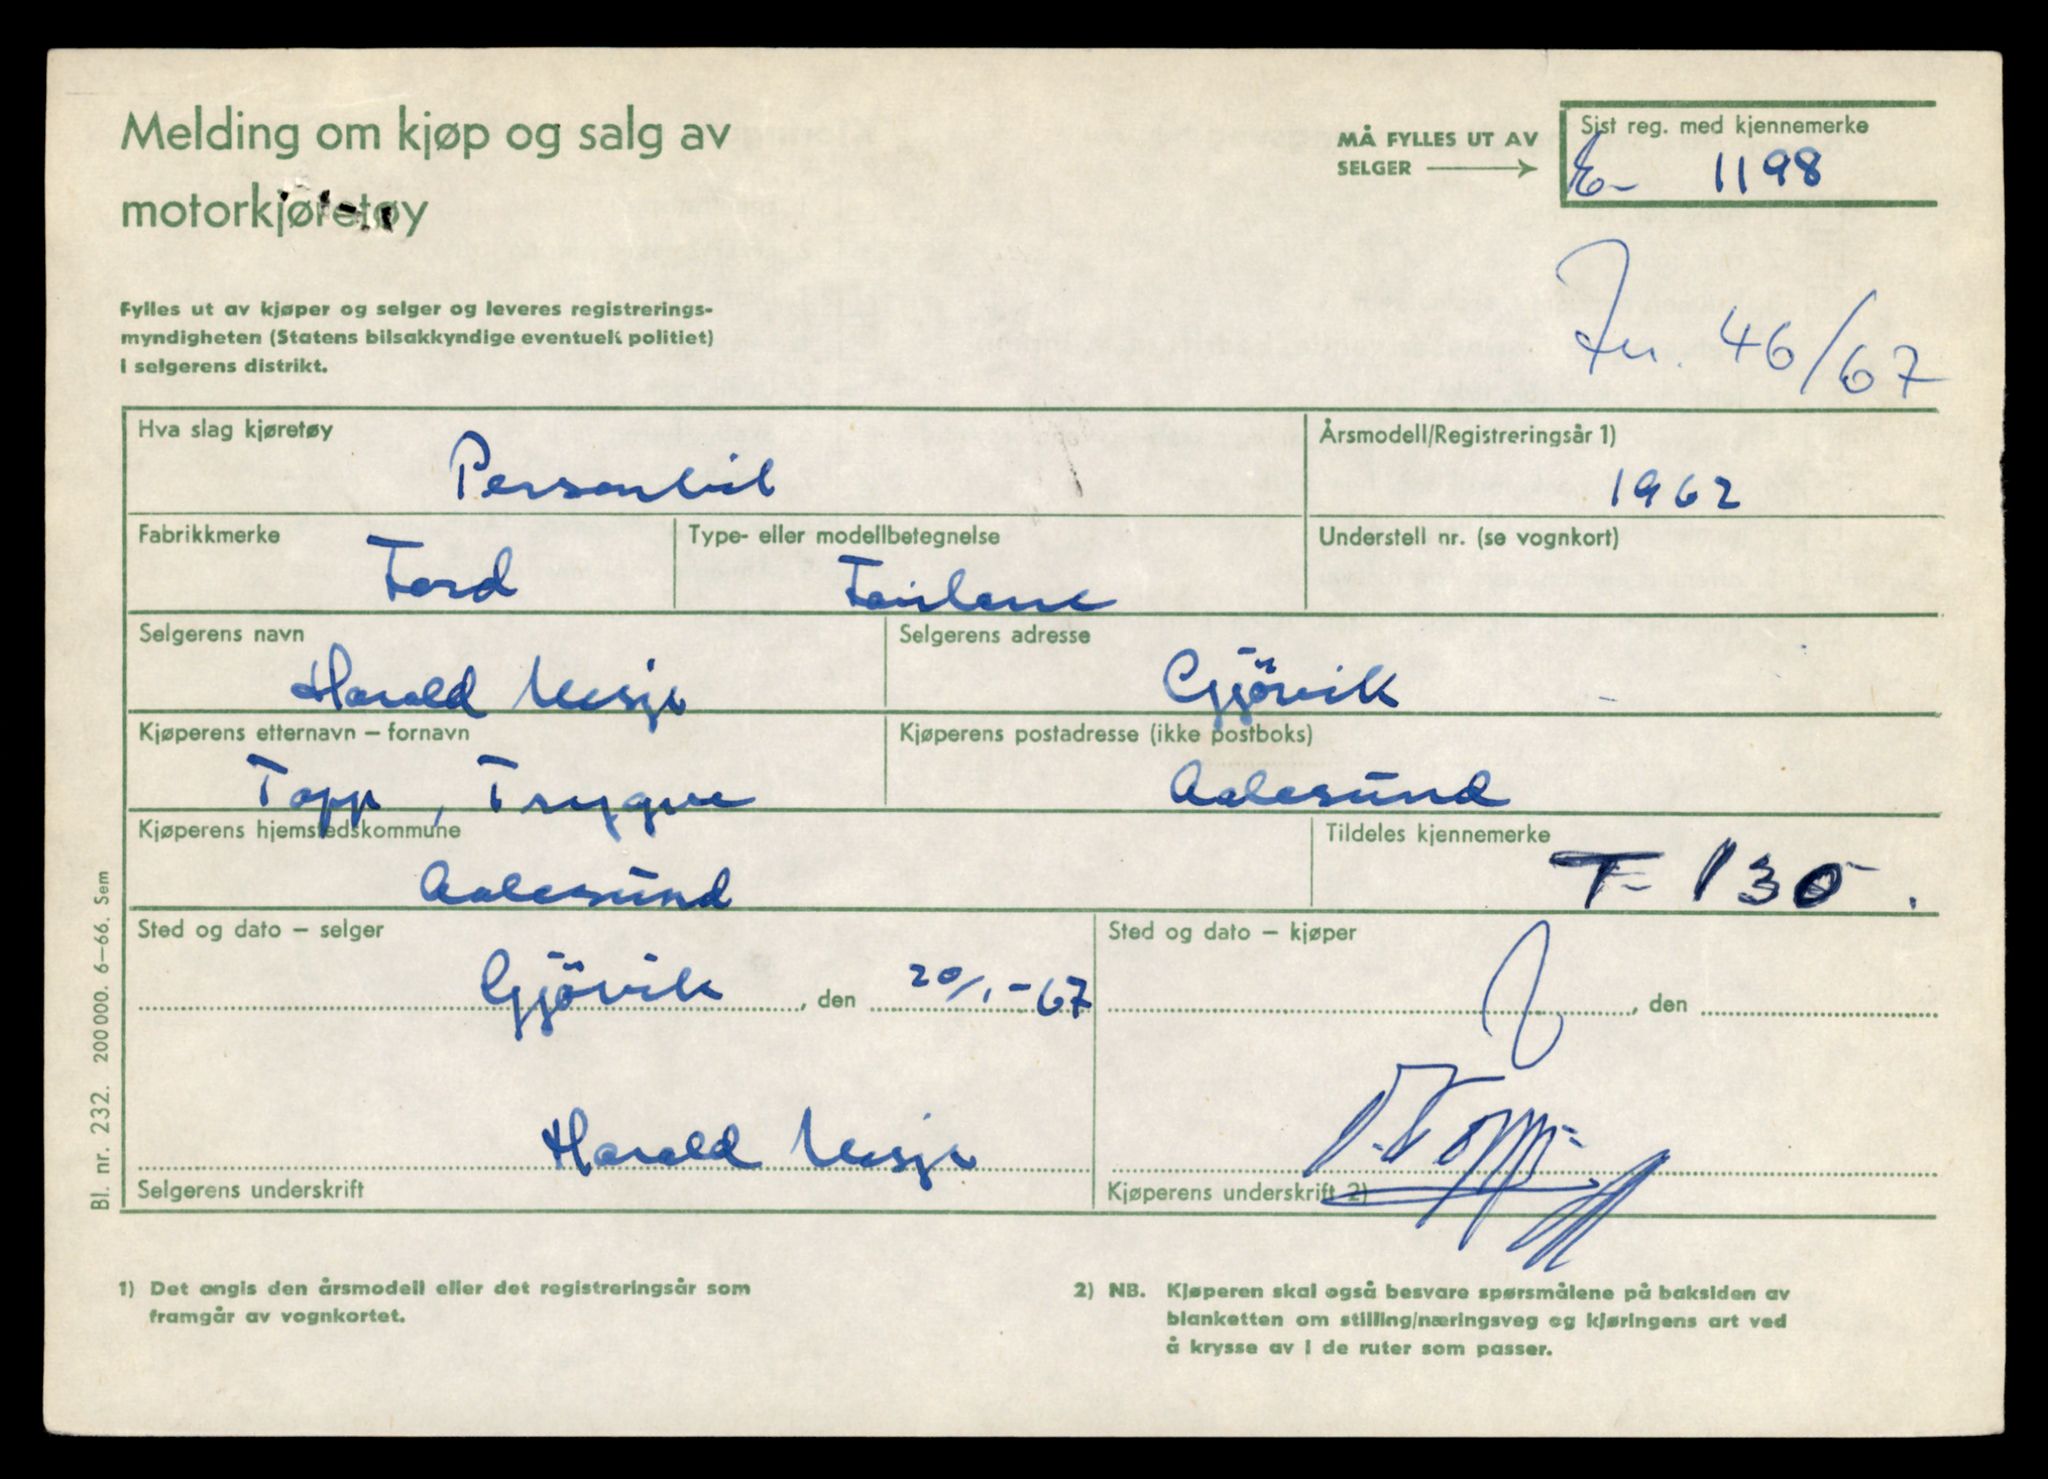 Melding om kjøp og salg av
motorkjøretøy
MÅ FYLLES UT AV
SELGER
Sist reg. med kjennemerke
E- 1198
Jnr. 46/67
Fylles ut av kjøper og selger og leveres registrerings-
myndigheten (Statens bilsakkyndige eventuelt politiet)
i selgerens distrikt.
Hva slag kjøretøy
Personbil
Årsmodell/Registreringsår 1)
1962
Fabrikkmerke
Ford
Type- eller modellbetegnelse
Fairlane
Understell nr. (se vognkort)
Selgerens navn
Harald
Selgerens adresse
Gjövik
Kjøperens etternavn – fornavn
Topp, Trygve
Kjøperens postadresse (ikke postboks)
Aalesund
Kjøperens hjemstedskommune
Aalesund
Tildeles kjennemerke
T- 130.
Sted og dato – selger
Gjövik, den 20/1-67
Sted og dato – kjøper
, den
Harald
Selgerens underskrift
T. Topp
Kjøperens underskrift 2)
Bl. nr. 232. 200 000. 6–66. Sem
1) Det angis den årsmodell eller det registreringsår som
framgår av vognkortet.
2) NB. Kjøperen skal også besvare spørsmålene på baksiden av
blanketten om stilling/næringsveg og kjøringens art ved
å krysse av i de ruter som passer.